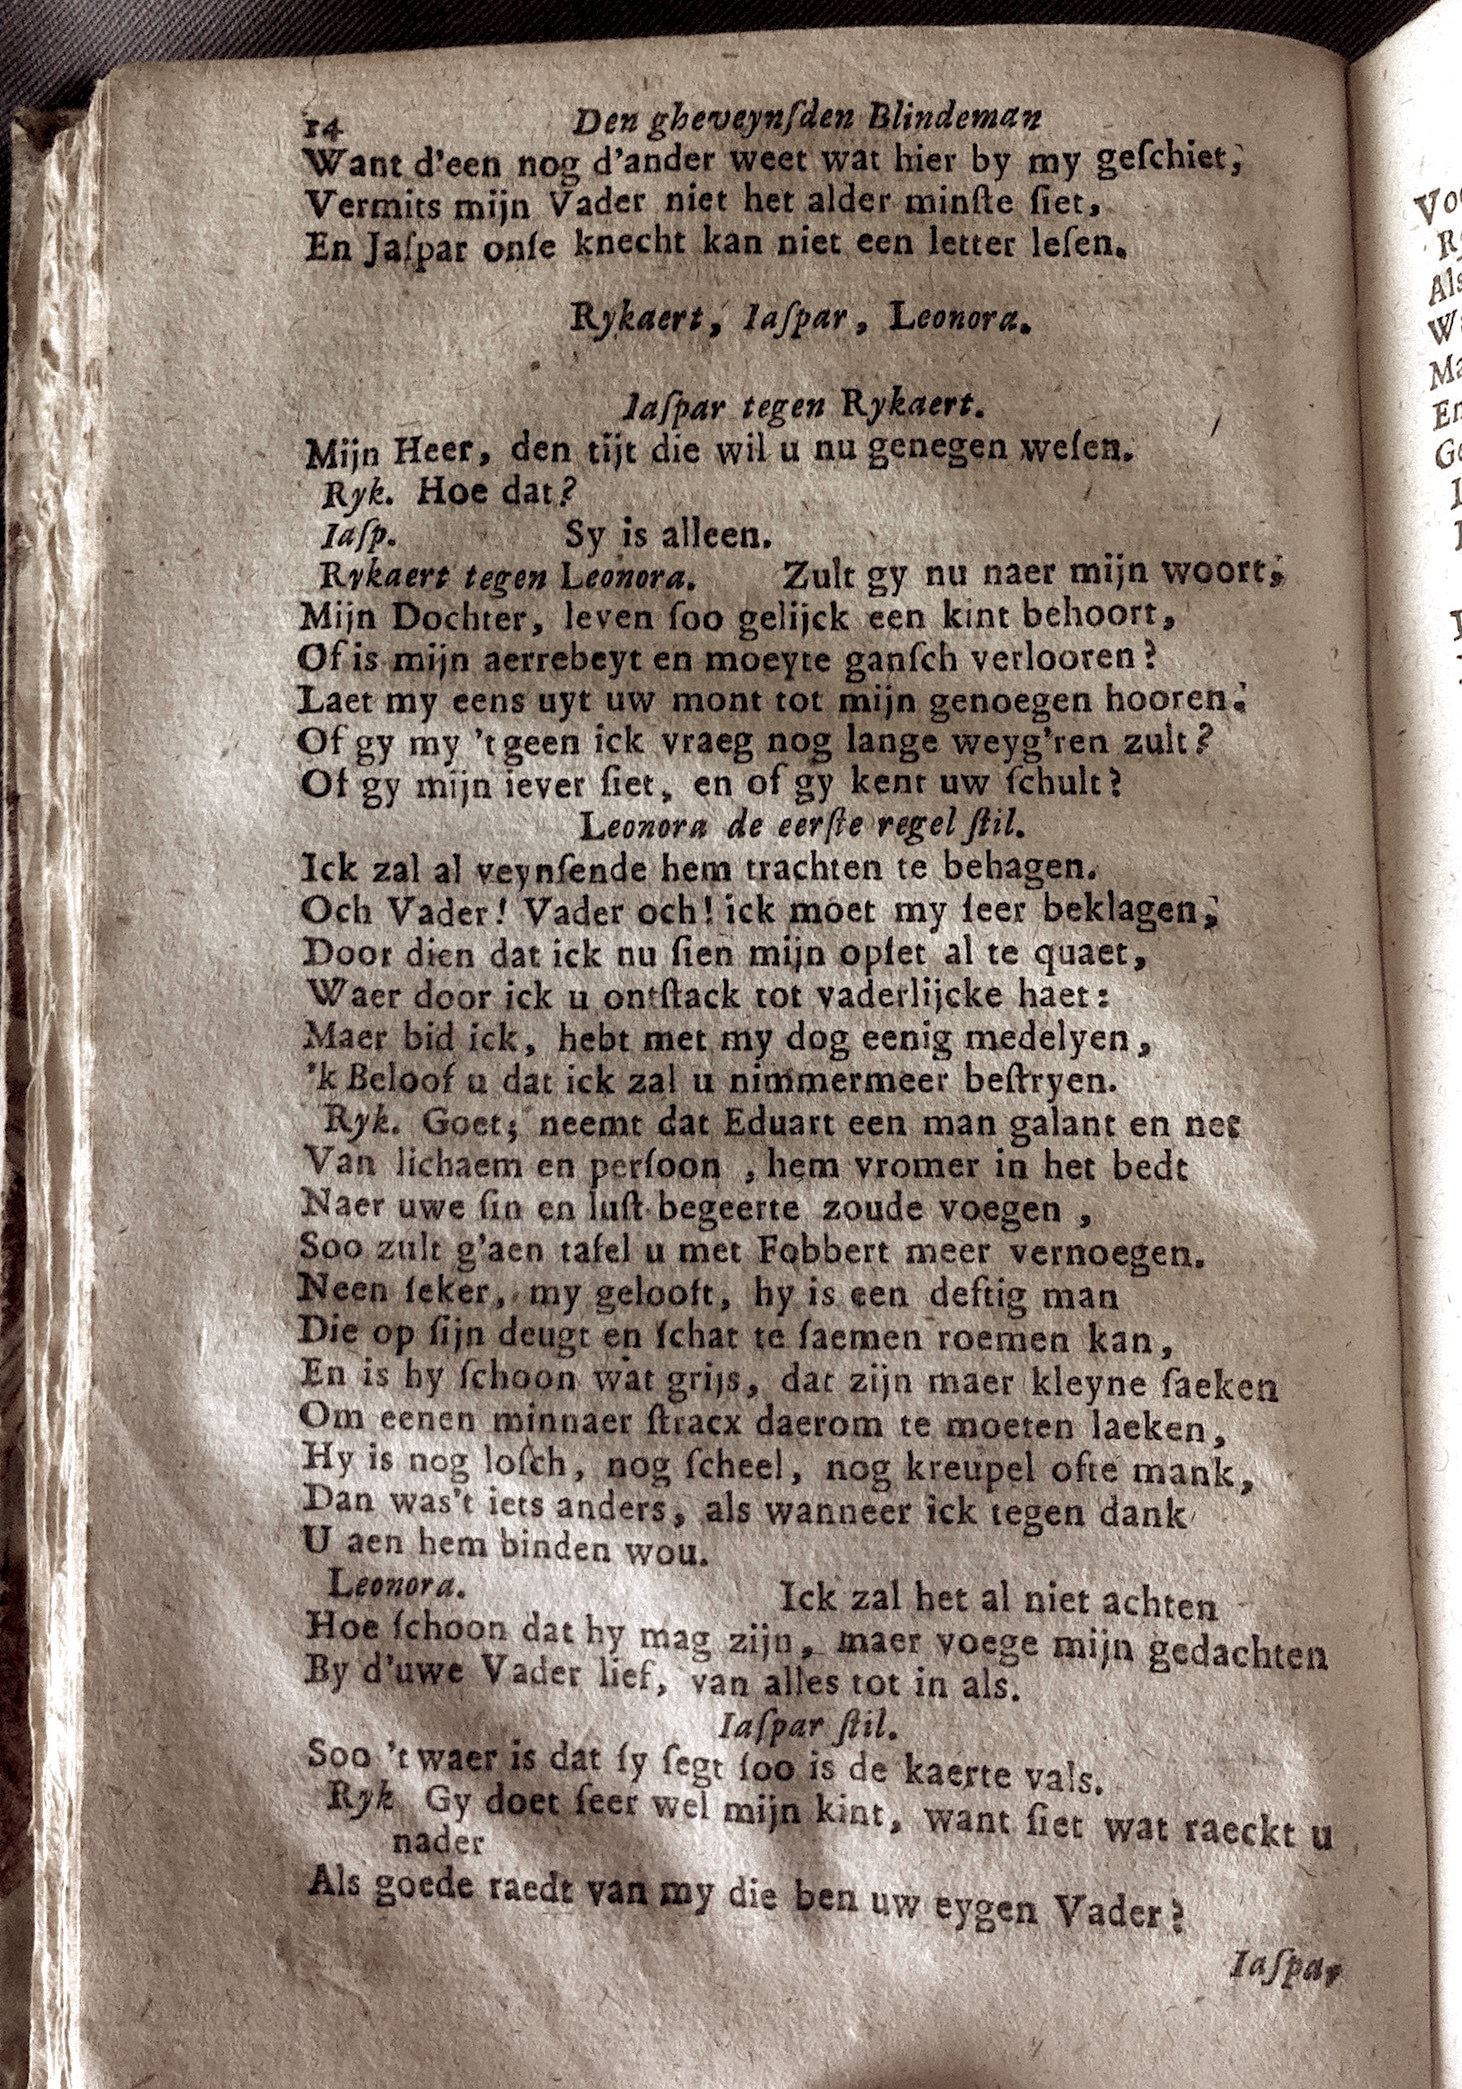 14 Den gheveynſden Blindeman
Want d'een nog d'ander weet wat hier by my geſchiet;
Vermits mijn Vader niet het alder minſte ſiet,
En Jaſpar onſe knecht kan niet een letter leſen.
Rykaert, Iaſpar, Leonora.
Iaſpar tegen Rykaert.
Mijn Heer, den tijt die wil u nu genegen weſen.
Ryk. Hoe dat?
Iaſp. Sy is alleen.
Rykaert tegen Leonora. Zult gy nu naer mijn woort;
Mijn Dochter, leven ſoo gelijck een kint behoort,
Of is mijn aerrebeyt en moeyte ganſch verlooren?
Laet my eens uyt uw mont tot mijn genoegen hooren;
Of gy my 't geen ick vraeg nog lange weyg'ren zult?
Of gy mijn iever ſiet, en of gy kent uw ſchult?
Leonora de eerſte regel ſtil.
Ick zal al veynſende hem trachten te behagen.
Och Vader! Vader och! ick moet my ſeer beklagen;
Door dien dat ick nu ſien mijn opſet al te quaet,
Waer door ick u ontſtack tot vaderlijcke haet:
Maer bid ick, hebt met my dog eenig medelyen,
'k Beloof u dat ick zal u nimmermeer beſtryen.
Ryk. Goet; neemt dat Eduart een man galant en net
Van lichaem en perſoon, hem vromer in het bedt
Naer uwe ſin en luſt begeerte zoude voegen,
Soo zult g'aen tafel u met Fobbert meer vernoegen.
Neen ſeker, my gelooft, hy is een deftig man
Die op ſijn deugt en ſchat te ſaemen roemen kan,
En is hy ſchoon wat grijs, dat zijn maer kleyne ſaeken
Om eenen minnaer ſtracx daerom te moeten laeken,
Hy is nog loſch, nog ſcheel, nog kreupel ofte mank,
Dan was't iets anders, als wanneer ick tegen dank
U aen hem binden wou.
Leonora. Ick zal het al niet achten
Hoe ſchoon dat hy mag zijn, maer voege mijn gedachten
By d'uwe Vader lief, van alles tot in als.
Iaſpar ſtil.
Soo 't waer is dat ſy ſegt ſoo is de kaerte vals.
Ryk Gy doet ſeer wel mijn kint, want ſiet wat raeckt u
nader
Als goede raedt van my die ben uw eygen Vader?
Iaſpar